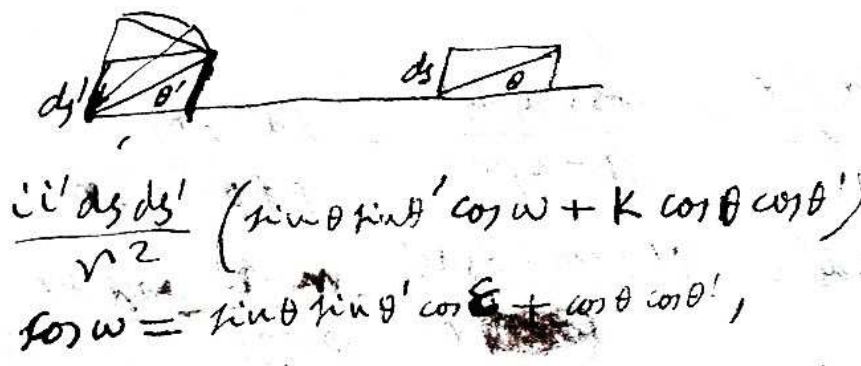 ds' θ' ds θ
ii' ds ds' / r² (sin θ sin θ' cos ω + K cos θ cos θ')
cos ω = sin θ sin θ' cos ε + cos θ cos θ',